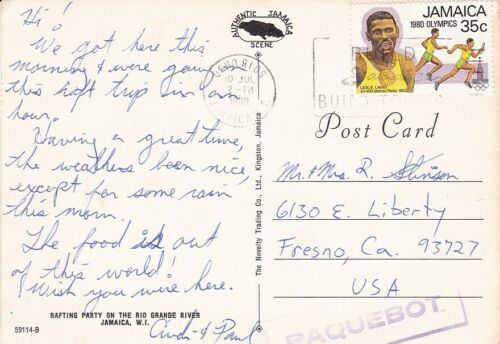 Hi!
We got here this
morning & were going on
this raft trip in an
hour.
Having a great time,
the weathers been nice,
except for some rain
this morn.
The food is out
of this world!
Wish you were here.
Cindi & Paul
RAFTING PARTY ON THE RIO GRANDE RIVER
JAMAICA, W.I.
59114-B
AUTHENTIC JAMAICA
SCENE
The Novelty Trading Co., Ltd., Kingston, Jamaica
OCHO RIOS
10 JUL
2-PM
1980
JAMAICA
JAMAICA
1980 OLYMPICS
35c
LESLIE LAING
4 x 400 Metres Relay 1952
BUI
Post Card
Mr. & Mrs. R. Stinson
6130 E. Liberty
Fresno, Ca. 93727
USA
PAQUEBOT